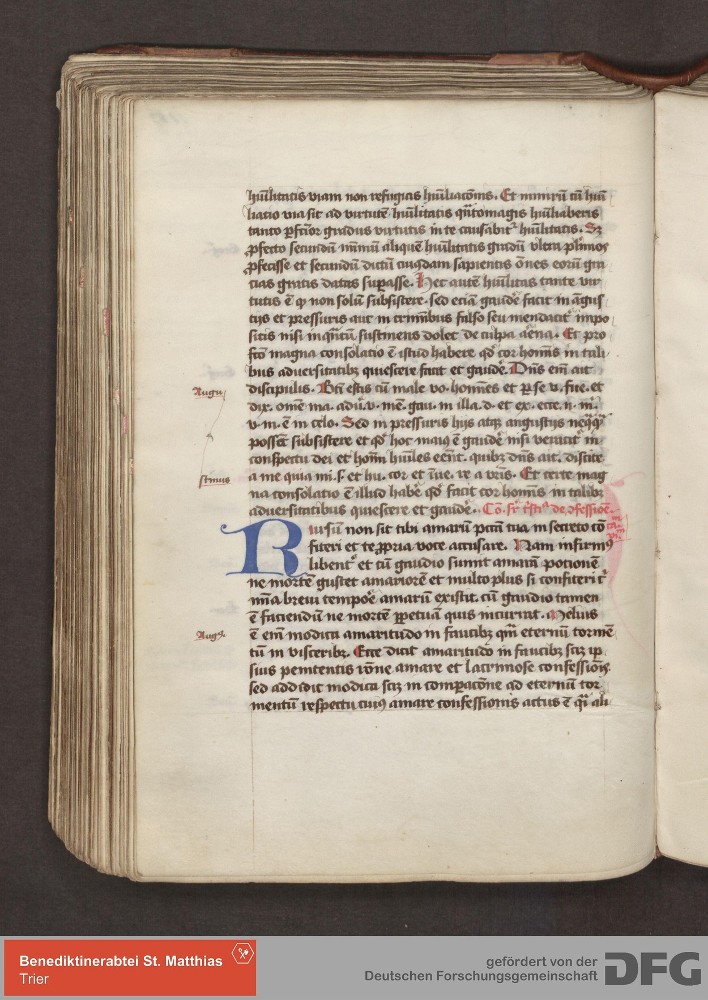 hūilitatis viam non refugias hūiliac̄onis. Et nimirū cū hūi
liatio via sit ad virtutē hūilitatis q̄ntomagis hūiliaberis
tanto p̄fc̄ior gradus virtutis in te causabit᷑ hūilitatis. Sꝫ
ꝓfecto secundū nimiū aliquē hūilitatis gradū vltra pl̄imos
ꝓfecisse et secundū dictū cuiꝰdam sapientis ōnes eorū gra
cias gratis datas supasse. Hec autē hūilitas tante vir
tutis ē ꝙ non solū subsistere. sed eciā gaudē facit in angus
tijs et pressuris aut in criminibus falso seu mendacit᷑ impo
sitis nisi inq̄ntū sustinens dolet de culpa aliena. Et pro
fc̄to magna consolatio ē istud habere qd̄ cor homīs in tali
bus aduersitatibꝫ quiescere facit et gaudē. Dn̄s em̄ ait
discipulis. Btī estis cū male vo. homīes et ꝑse v. fue. et
dix. omē ma. adū. v. mē. gau. in illa. d. et ex. ecce. n. m.
v. m. ē in celo. Sed in pressuris hijs atqꝫ angustijs neqꝙ̄
possēt subsistere et qd̄ hoc maiꝰ ē gaudē nisi veniāt in
conspectu dei et homī hūiles eēnt. quibꝫ dn̄s ait. discite
a me quia mi. s. et hu. cor et īue. re a vr̄is. Et certe mag
na consolatio ē illud habē qd̄ facit cor homīs in talibꝫ
aduersitatibus quiescere et gaudē.
Rursū non sit tibi amarū pctm̄ tua in secreto cō
fiteri et te ꝓpria voce accusare. Nam infirmꝰ
libent᷑ et cū gaudio sumit amarā potionē
ne mortē gustet amariorē et multo plus si confiteri r᷑
in̄a breui tempoē amarū existit cū gaudio tamen
ē faciendū ne mortē ꝑpetuā quis incurrat. Melius
ē em̄ modica amaritudo in faucibꝫ qm̄ eternū tormē
tū in visceribꝫ. Ecce dicit amaritudo in faucibꝫ scꝫ ip
sius penitentis rōne amare et lacrimose confessionis.
sed addidit modica scꝫ in compac̄one ad eternū tor
mentū respectu cuiꝰ amare confessionis actus ē q̄i ali
Augu
stinus
Augꝰ.
Benediktinerabtei St. Matthias
Trier
gefördert von der
Deutschen Forschungsgemeinschaft
DFG